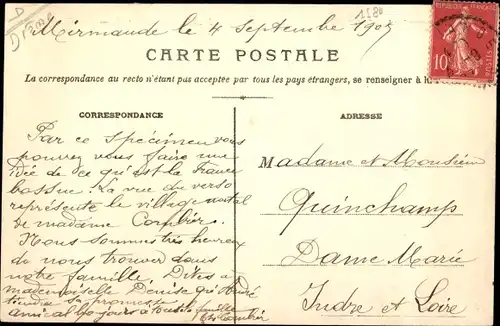 D
Drôme
1580
Mirmande le 4 Septembre 1907
CARTE POSTALE
La correspondance au recto n'étant pas acceptée par tous les pays étrangers, se renseigner à la
RÉPUBLIQUE FRANÇAISE
10
CORRESPONDANCE
Par ce spécimen vous
pouvez vous faire une
idée de ce qu'est la France
bossue. La vue du verso
représente le village natal
de madame Combier.
Nous sommes très heureux
de nous trouver dans
notre famille. Dites à
mademoiselle Denise qu'André
tiendra sa promesse
amical bonjours à toute la famille
Combier
ADRESSE
Madame et Monsieur
Quinchamp
Dame Marie
Indre et Loire